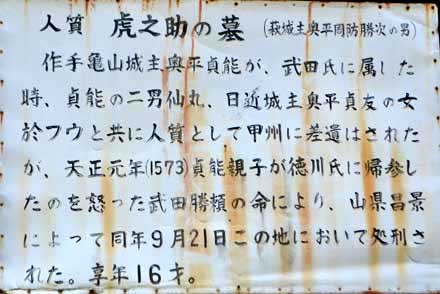 人質 虎之助の墓 (萩城主奥平周防勝次の男)
作手亀山城主奥平貞能が、武田氏に属した
時、貞能の二男仙丸、日近城主奥平貞友の女
於フウと共に人質として甲州に差遣はされた
が、天正元年(1573)貞能親子が徳川氏に帰参し
たのを怒った武田勝頼の命により、山県昌景
によって同年9月21日この地において処刑さ
れた。享年16才。